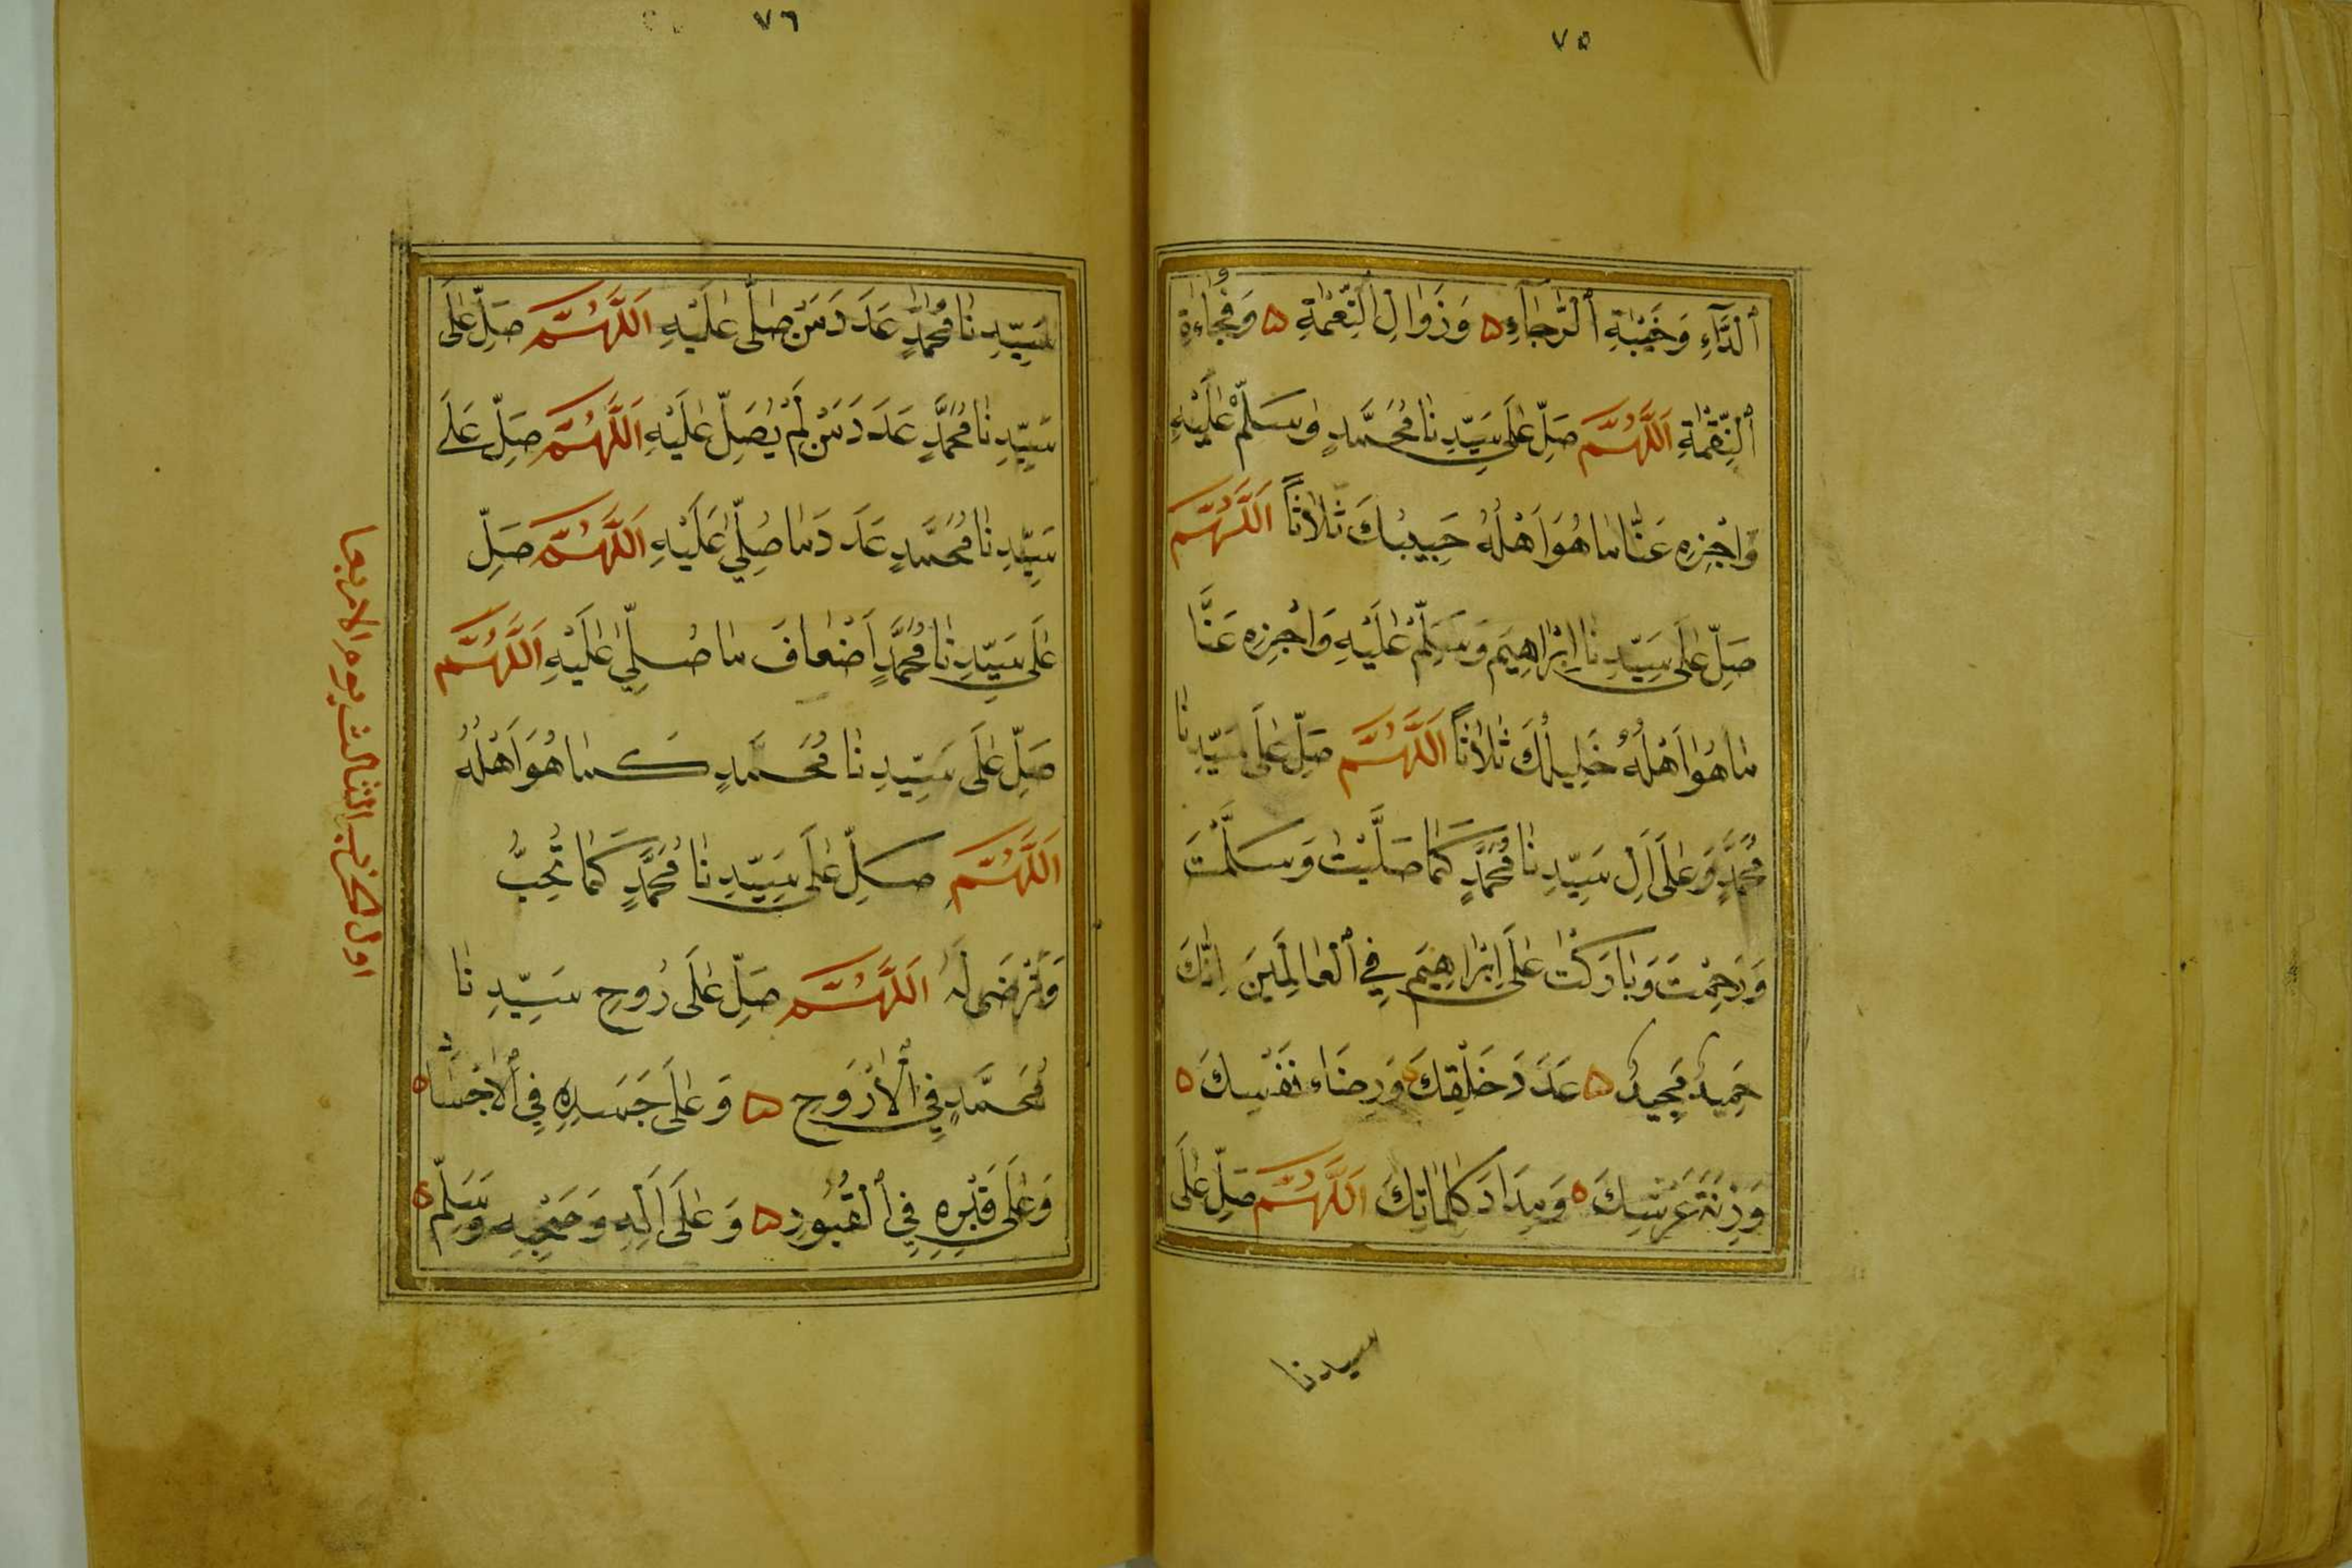 ٧٥
اَلدَّآءِ وَخَيْبَةِ اَلرَّجَآءِ ۵ وَزَوَالِ اَلنِّعْمَةِ ۵ وَفُجَاءَةِ
اَلنِّقْمَةِ اَللَّهُمَّ صَلِّ عَلَى سَيِّدِنَا مُحَمَّدٍ وَسَلِّمْ عَلَيْهِ
وَاجْزِهِ عَنَّا مَا هُوَ اَهْلُهُ حَبِيبُكَ ثَلَاثًا اَللَّهُمَّ
صَلِّ عَلَى سَيِّدِنَا اِبْرَاهِيمَ وَسَلِّمْ عَلَيْهِ وَاجْزِهِ عَنَّا
مَا هُوَ اَهْلُهُ خَلِيلُكَ ثَلَاثًا اَللَّهُمَّ صَلِّ عَلَى سَيِّدِنَا
مُحَمَّدٍ وَعَلَى اَلِ سَيِّدِنَا مُحَمَّدٍ كَمَا صَلَّيْتَ وَسَلَّمْتَ
وَرَحِمْتَ وَبَارَكْتَ عَلَى اِبْرَاهِيمَ فِي اَلْعَالَمِينَ اِنَّكَ
حَمِيدٌ مَجِيدٌ ۵ عَدَدَ خَلْقِكَ ۵ وَرِضَاءَ نَفْسِكَ ۵
وَزِنَةَ عَرْشِكَ ۵ وَمِدَادَ كَلِمَاتِكَ اَللَّهُمَّ صَلِّ عَلَى
سيدنا
٧٦
سَيِّدِنَا مُحَمَّدٍ عَدَدَ مَنْ صَلَّى عَلَيْهِ اَللَّهُمَّ صَلِّ عَلَى
سَيِّدِنَا مُحَمَّدٍ عَدَدَ مَنْ لَمْ يُصَلِّ عَلَيْهِ اَللَّهُمَّ صَلِّ عَلَى
سَيِّدِنَا مُحَمَّدٍ عَدَدَ مَا صُلِّيَ عَلَيْهِ اَللَّهُمَّ صَلِّ
عَلَى سَيِّدِنَا مُحَمَّدٍ اَضْعَافَ مَا صُلِّيَ عَلَيْهِ اَللَّهُمَّ
صَلِّ عَلَى سَيِّدِنَا مُحَمَّدٍ كَمَا هُوَ اَهْلُهُ
اَللَّهُمَّ صَلِّ عَلَى سَيِّدِنَا مُحَمَّدٍ كَمَا تُحِبُّ
وَتَرْضَى لَهُ اَللَّهُمَّ صَلِّ عَلَى رُوحِ سَيِّدِنَا
مُحَمَّدٍ فِي اَلْاَرْوَحِ ۵ وَعَلَى جَسَدِهِ فِي اَلْاَجْسَادِ ۵
وَعَلَى قَبْرِهِ فِي اَلْقُبُورِ ۵ وَعَلَى اَلِهِ وَصَحْبِهِ وَسَلِّمْ ۵
اول الحزب الثالث يوم الاربعا